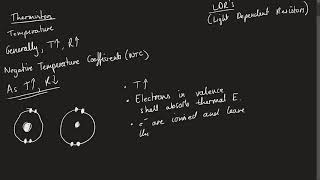 Thermistor
Temperature
Generally, T↑, R↑
Negative Temperature Coefficients (NTC)
As T↑, R↓
LDR's
(Light Dependent Resistors)
• T↑
• Electrons in valence
shell absorbs thermal E.
• e⁻ are ionised and leave
the